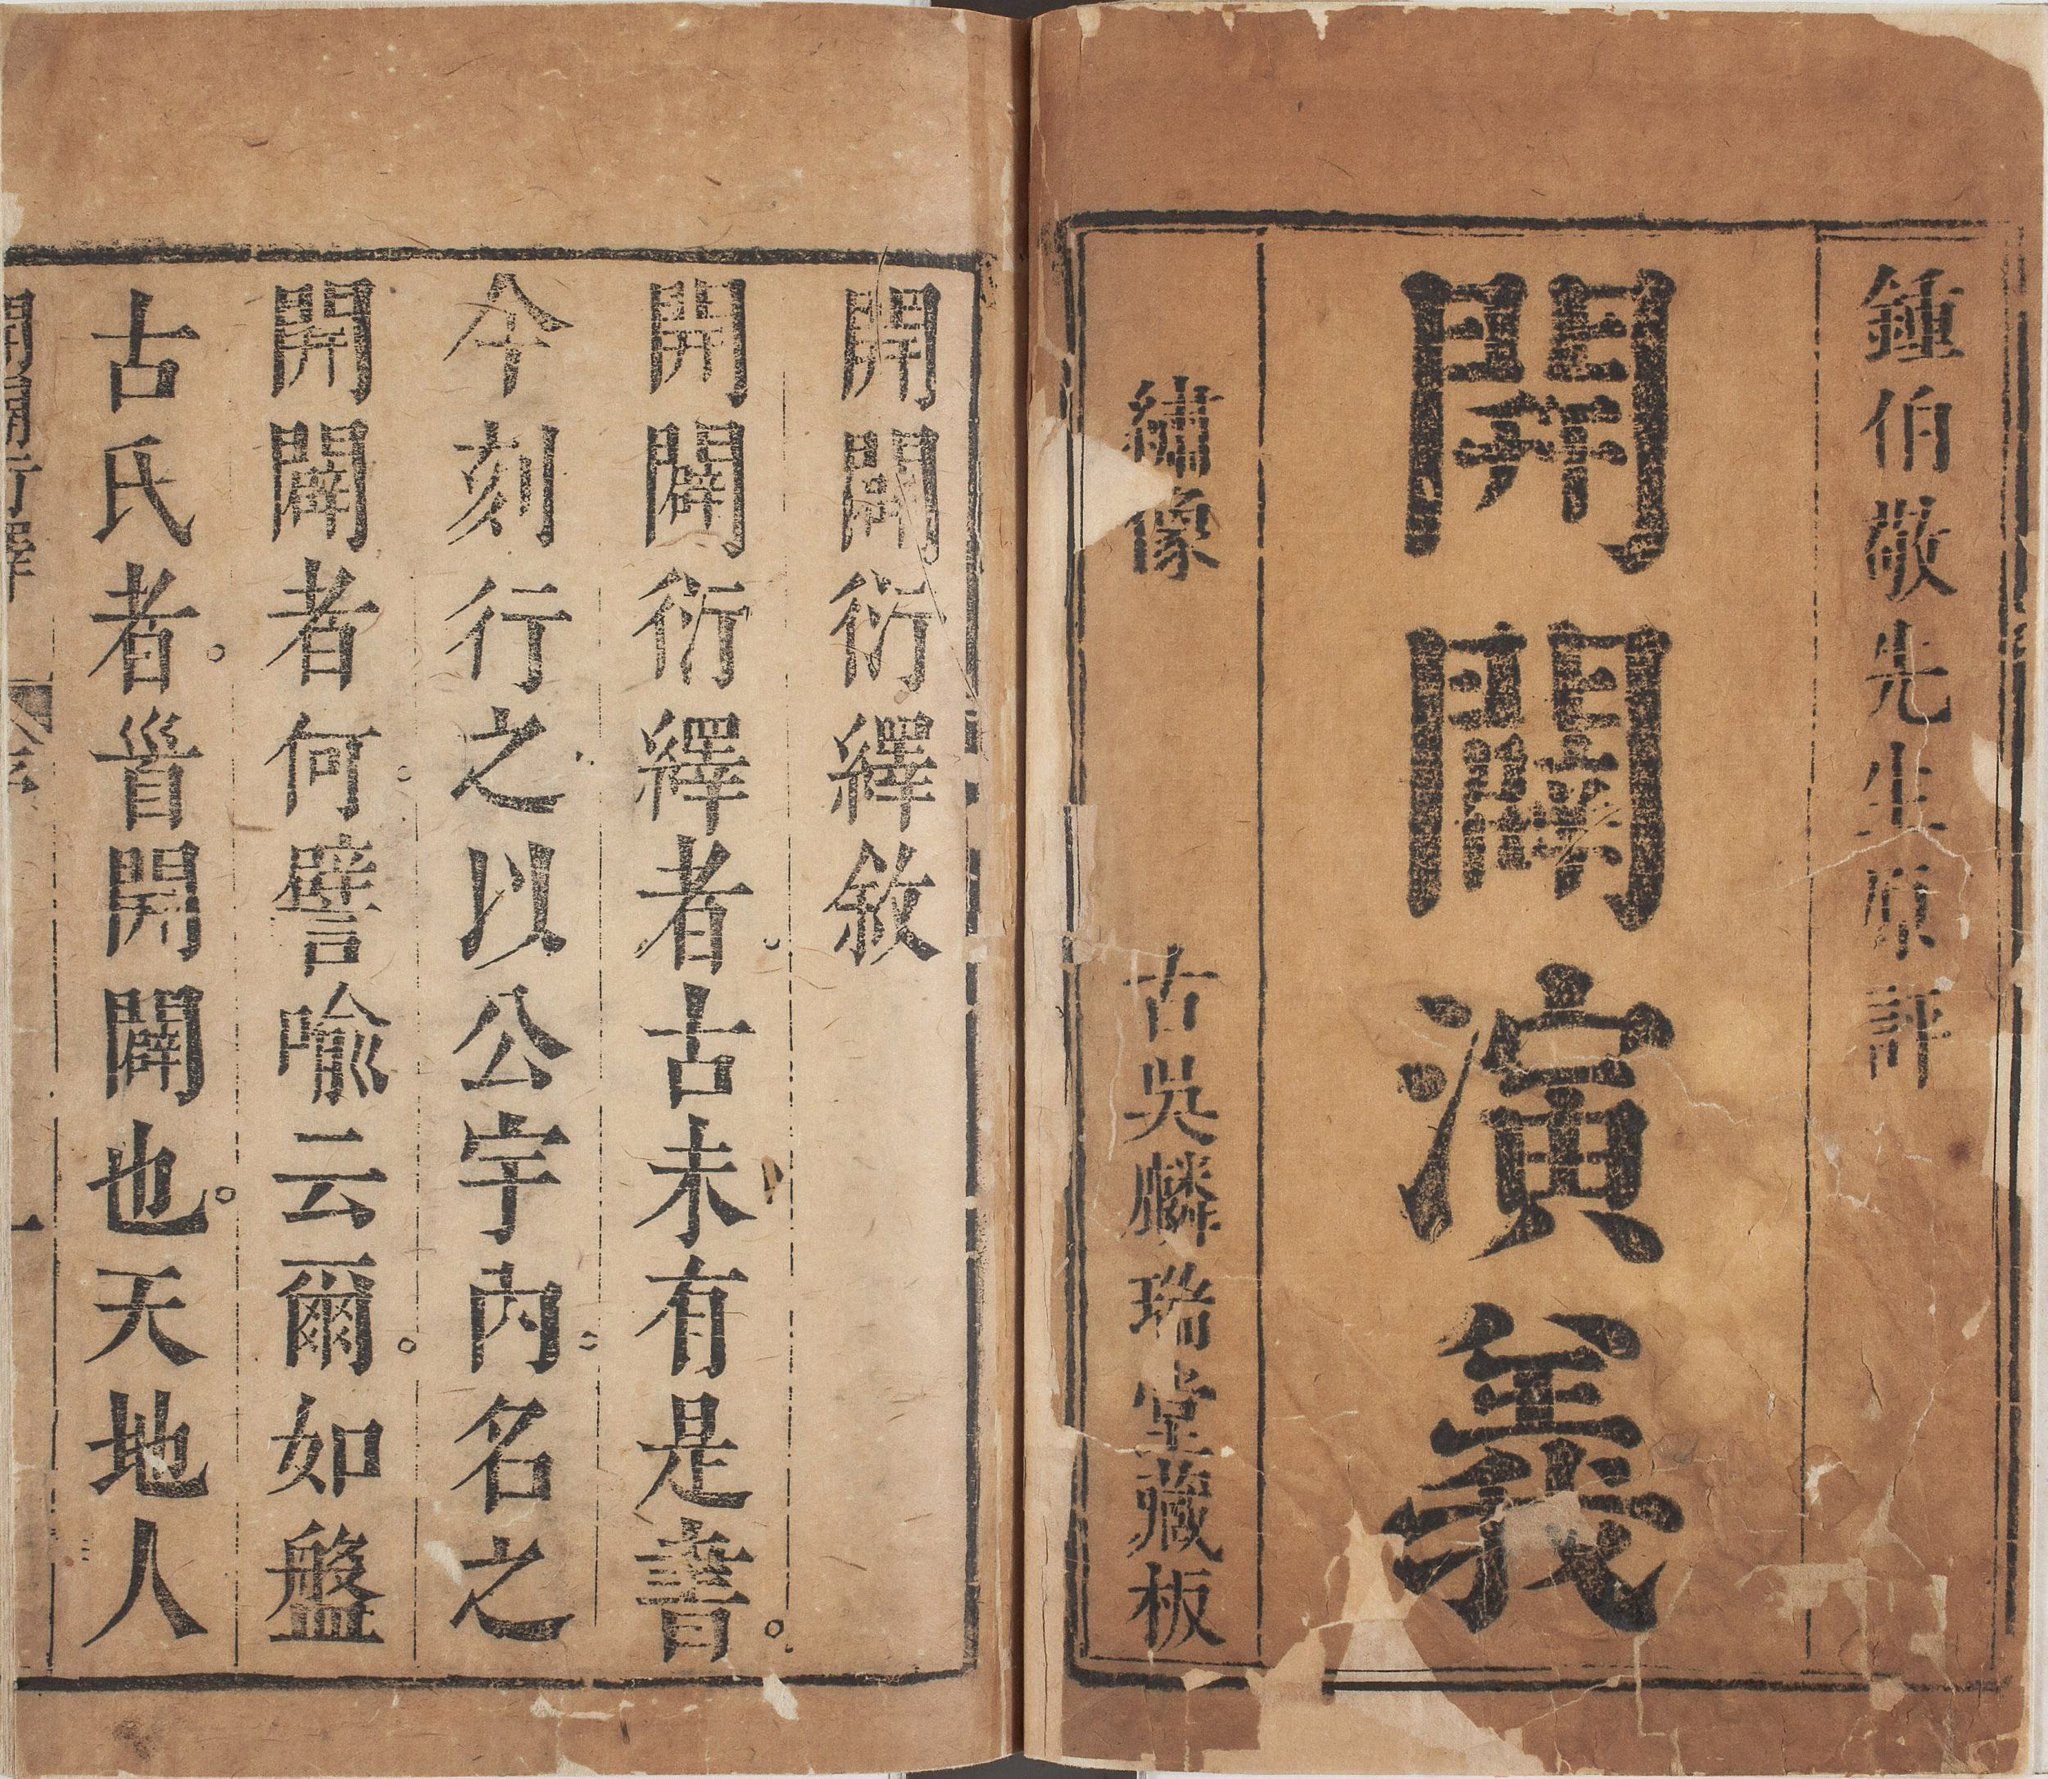 鍾伯敬先生原評
開闢演義
繡像 古吳麟瑞堂藏板
開闢衍繹敘
開闢衍繹者。古未有是書。
今刻行之以公宇內名之
開闢者何。譬喻云爾。如盤
古氏者。首開闢也。天地人
開闢衍繹 序 一